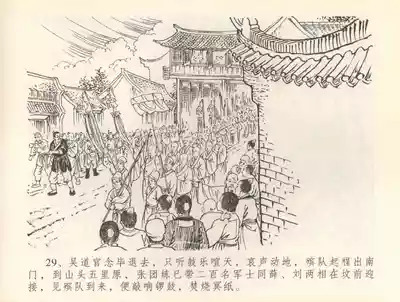 29、吴道官念毕退去，只听鼓乐喧天，哀声动地，殡队起程出南
门，到山头五里原，张团练已带二百名军士同薛、刘两相在坟前迎
接，见殡队到来，便敲响锣鼓，焚烧冥纸。